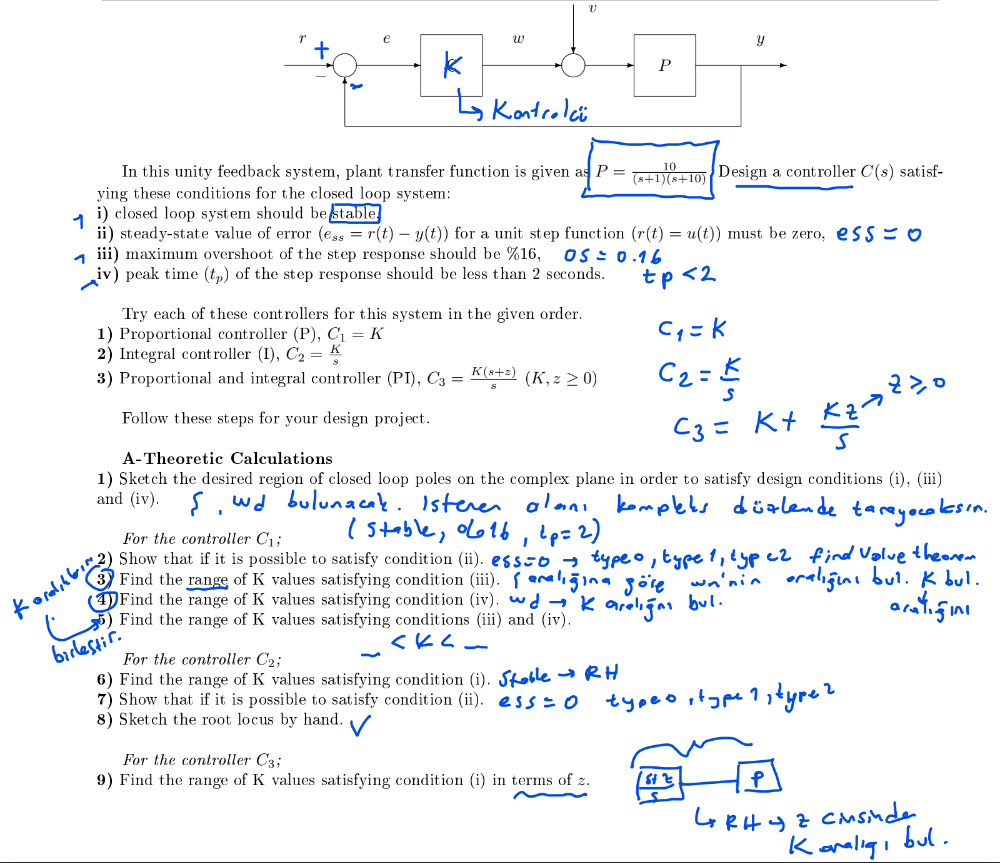 r + e K w v P y
− -
↳ Kontrolcü
In this unity feedback system, plant transfer function is given as P = 10/((s+1)(s+10)) Design a controller C(s) satisf-
ying these conditions for the closed loop system:
i) closed loop system should be stable,
ii) steady-state value of error (e_ss = r(t) − y(t)) for a unit step function (r(t) = u(t)) must be zero, ess = 0
iii) maximum overshoot of the step response should be %16, OS = 0.16
iv) peak time (t_p) of the step response should be less than 2 seconds. tp < 2
Try each of these controllers for this system in the given order.
1) Proportional controller (P), C₁ = K C₁ = K
2) Integral controller (I), C₂ = K/s C₂ = K/s
3) Proportional and integral controller (PI), C₃ = K(s+z)/s (K, z ≥ 0) C₃ = K + Kz/s → z ≥ 0
Follow these steps for your design project.
A-Theoretic Calculations
1) Sketch the desired region of closed loop poles on the complex plane in order to satisfy design conditions (i), (iii)
and (iv). ζ, wd bulunacak. Istenen alanı kompleks düzlemde tarayacaksın.
(stable, %16, tp=2)
For the controller C₁;
2) Show that if it is possible to satisfy condition (ii). ess=0 → type0, type1, type2 find Value theorem
3) Find the range of K values satisfying condition (iii). ζ aralığına göre wn'nin aralığını bul. K bul.
4) Find the range of K values satisfying condition (iv). wd → K aralığını bul. aralığını
5) Find the range of K values satisfying conditions (iii) and (iv).
birleştir.
_ < K < _
For the controller C₂;
6) Find the range of K values satisfying condition (i). Stable → RH
7) Show that if it is possible to satisfy condition (ii). ess = 0 type0, type1, type2
8) Sketch the root locus by hand. ✓
For the controller C₃;
9) Find the range of K values satisfying condition (i) in terms of z. s+z/s P
↳ RH → z cinsinden
K aralığı bul.